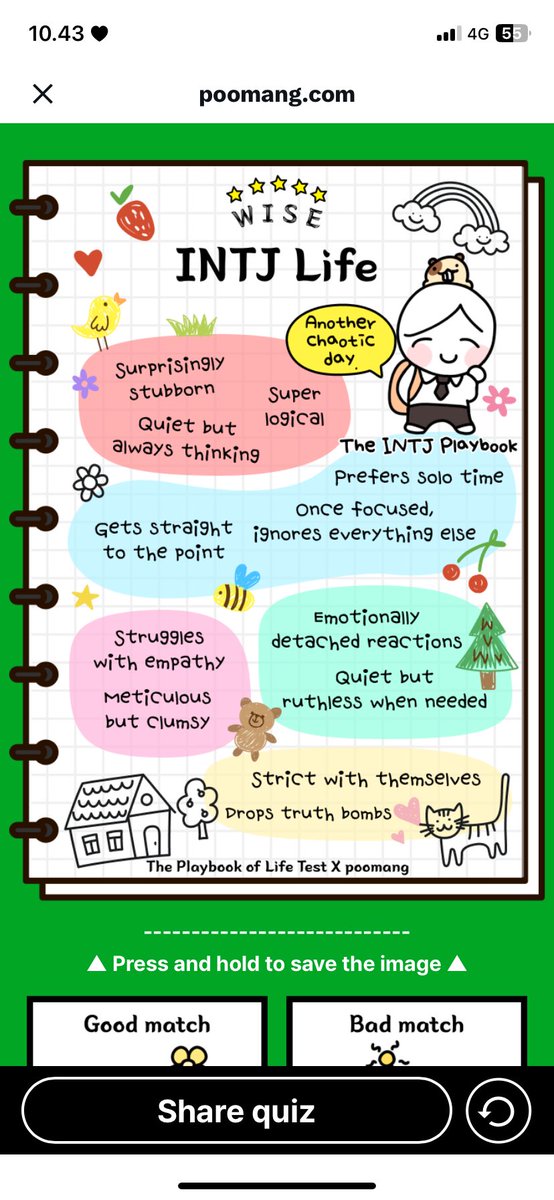 10.43
4G 55
poomang.com
WISE
INTJ Life
Another
chaotic
day.
Surprisingly
stubborn
Super
logical
Quiet but
always thinking
The INTJ Playbook
Prefers solo time
Once focused,
ignores everything else
Gets straight
to the point
Struggles
with empathy
Meticulous
but clumsy
Emotionally
detached reactions
Quiet but
ruthless when needed
Strict with themselves
Drops truth bombs
The Playbook of Life Test X poomang
▲ Press and hold to save the image ▲
Good match
Bad match
Share quiz